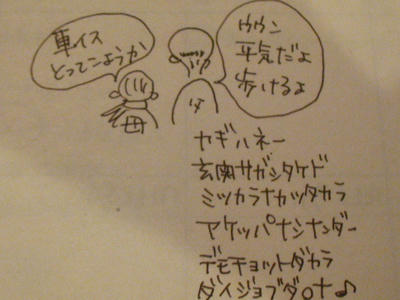 車イス
とってこようか
母
ウウン
平気だよ
歩けるよ
父
カギハネー
玄関サガシタケド
ミツカラナカッタカラ
アケッパナシナンダー
デモチョットダカラ
ダイジョブダロナ♪